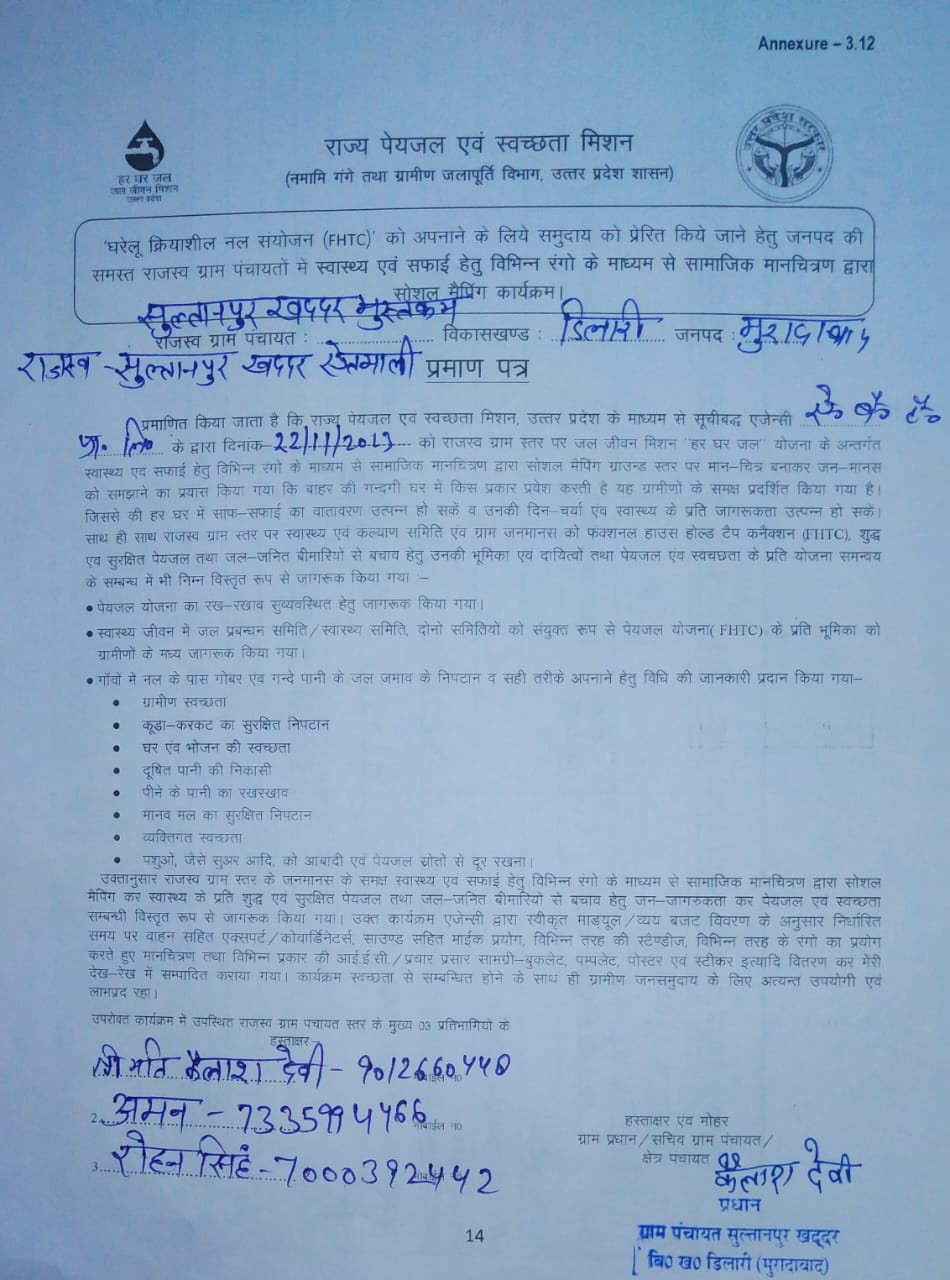 Annexure – 3.12
हर घर जल
जल जीवन मिशन
उत्तर प्रदेश
राज्य पेयजल एवं स्वच्छता मिशन
(नमामि गंगे तथा ग्रामीण जलापूर्ति विभाग, उत्तर प्रदेश शासन)
उत्तर प्रदेश सरकार
'घरेलू क्रियाशील नल संयोजन (FHTC)' को अपनाने के लिये समुदाय को प्रेरित किये जाने हेतु जनपद की
समस्त राजस्व ग्राम पंचायतों में स्वास्थ्य एवं सफाई हेतु विभिन्न रंगो के माध्यम से सामाजिक मानचित्रण द्वारा
सोशल मैपिंग कार्यक्रम।
सुल्तानपुर खददर मुस्तकम
राजस्व ग्राम पंचायत : विकासखण्ड : डिलारी जनपद : मुरादाबाद
राजस्व - सुल्तानपुर खददर प्रमाण पत्र
प्रमाणित किया जाता है कि राज्य पेयजल एवं स्वच्छता मिशन, उत्तर प्रदेश के माध्यम से सूचीबद्ध एजेन्सी
प्रा. लि० के द्वारा दिनांक- 22/11/2023 को राजस्व ग्राम स्तर पर जल जीवन मिशन "हर घर जल" योजना के अन्तर्गत
स्वास्थ्य एवं सफाई हेतु विभिन्न रंगों के माध्यम से सामाजिक मानचित्रण द्वारा सोशल मैपिंग ग्राउन्ड स्तर पर मान–चित्र बनाकर जन–मानस
को समझाने का प्रयास किया गया कि बाहर की गन्दगी घर में किस प्रकार प्रवेश करती है यह ग्रामीणों के समक्ष प्रदर्शित किया गया है।
जिससे की हर घर में साफ–सफाई का वातावरण उत्पन्न हो सकें व उनकी दिन–चर्या एवं स्वास्थ्य के प्रति जागरूकता उत्पन्न हो सकें।
साथ ही साथ राजस्व ग्राम स्तर पर स्वास्थ्य एवं कल्याण समिति एंव ग्राम जनमानस को फक्शनल हाउस होल्ड टैप कनैक्शन (FHTC), शुद्ध
एवं सुरक्षित पेयजल तथा जल–जनित बीमारियों से बचाव हेतु उनकी भूमिका एवं दायित्वों तथा पेयजल एवं स्वच्छता के प्रति योजना समन्वय
के सम्बन्ध में भी निम्न विस्तृत रूप से जागरूक किया गया :–
• पेयजल योजना का रख–रखाव सुव्यवस्थित हेतु जागरूक किया गया।
• स्वास्थ्य जीवन में जल प्रबन्धन समिति/स्वास्थ्य समिति, दोनो समितियों को संयुक्त रूप से पेयजल योजना( FHTC) के प्रति भूमिका को
ग्रामीणों के मध्य जागरूक किया गया।
• गॉवों में नल के पास गोबर एंव गन्दे पानी के जल जमाव के निपटान व सही तरीके अपनाने हेतु विधि की जानकारी प्रदान किया गया–
• ग्रामीण स्वच्छता
• कूडा–करकट का सुरक्षित निपटान
• घर एंव भोजन की स्वच्छता
• दूषित पानी की निकासी
• पीने के पानी का रखरखाव
• मानव मल का सुरक्षित निपटान
• व्यक्तिगत स्वच्छता
• पशुओं, जैसे सुअर आदि, को आबादी एवं पेयजल स्रोतों से दूर रखना।
उक्तानुसार राजस्व ग्राम स्तर के जनमानस के समक्ष स्वास्थ्य एवं सफाई हेतु विभिन्न रंगो के माध्यम से सामाजिक मानचित्रण द्वारा सोशल
मैपिंग कर स्वास्थ्य के प्रति शुद्ध एवं सुरक्षित पेयजल तथा जल–जनित बीमारियों से बचाव हेतु जन–जागरुकता कर पेयजल एवं स्वच्छता
सम्बन्धी विस्तृत रूप से जागरूक किया गया। उक्त कार्यक्रम एजेन्सी द्वारा स्वीकृत माड्यूल/व्यय बजट विवरण के अनुसार निर्धारित
समय पर वाहन सहित एक्सपर्ट/कोवार्डिनेटर्स, साउण्ड सहित माईक प्रयोग, विभिन्न तरह की स्टैण्डीज, विभिन्न तरह के रंगो का प्रयोग
करते हुए मानचित्रण तथा विभिन्न प्रकार की आई.ई.सी./प्रचार प्रसार सामग्री–बुकलेट, पम्पलेट, पोस्टर एवं स्टीकर इत्यादि वितरण कर मेरी
देख–रेख में सम्पादित कराया गया। कार्यक्रम स्वच्छता से सम्बन्धित होने के साथ ही ग्रामीण जनसमुदाय के लिए अत्यन्त उपयोगी एवं
लाभप्रद रहा।
उपरोक्त कार्यक्रम में उपस्थित राजस्व ग्राम पंचायत स्तर के मुख्य 03 प्रतिभागियो के
हस्ताक्षर–
श्रीमति कैलाश देवी - 9012660440
2. अमन - 7335994466 मोबाईल न0
3. रोहन सिहं - 7000392442
हस्ताक्षर एंव मोहर
ग्राम प्रधान/सचिव ग्राम पंचायत/
क्षेत्र पंचायत
कैलाश देवी
प्रधान
ग्राम पंचायत सुल्तानपुर खद्दर
वि0 ख0 डिलारी (मुरादाबाद)
14